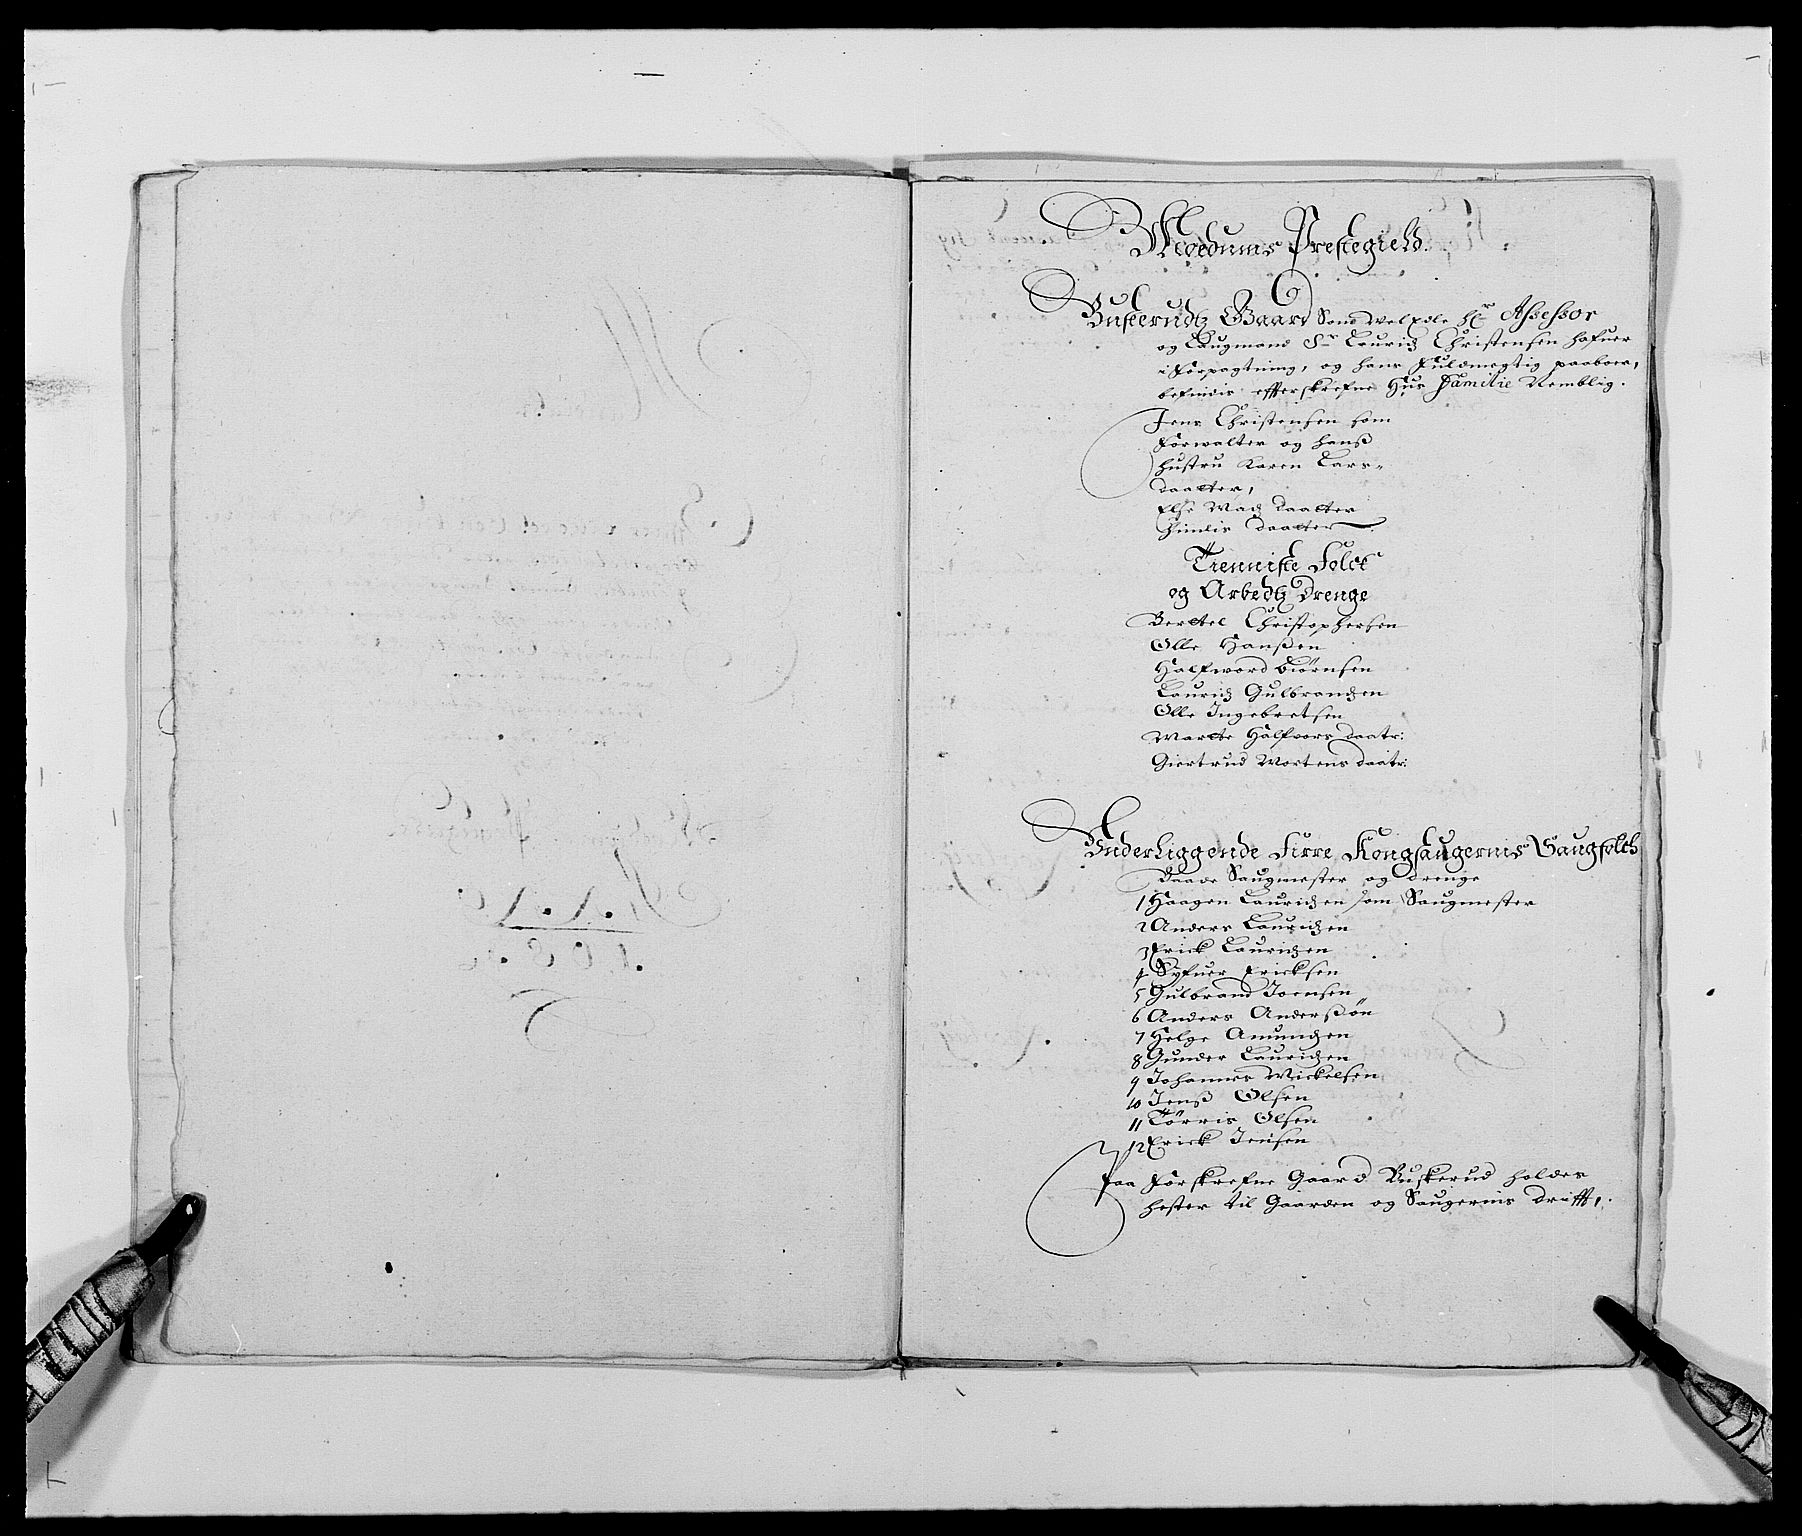 Moedums Prestegield.
Buskerudtz Gaard Som Welædle Hr Assessor
og Laugmand Sr Lauridz Christensen hafuer
i Forpagtning, og hans Fuldmegtig paaboer,
befindis effterskrefne Hus Familie Nemblig.
Jens Christensen som
Forwalter og hanß
hustru Karen Lars-
daatter,
Else Madz daatter
daatter
Tienniste Folck
og Arbedtz Drenge
Berttel Christophersen
Olle Hanßen
Halfword Biörnsen
Lauridz Gulbrandzen
Olle Ingebretsen
Martte Halfvors daatr:
Giertrud Mortens daatr:
Underliggende Firre Kongsaugernis Saugfolch
Baade Saugmester og Drenge
1 Haagen Lauridzen som Saugmester
2 Anders Lauridzen
3 Erick Lauridzen
4 Syfuer Ericksen
5 Gulbrand Joensen
6 Anders Anderßön
7 Helge Amundzen
8 Gunder Lauridzen
9 Johannes Mickelsen
10 Jenß Olsen
11 Törris Olsen
12 Erick Jensen
Paa Forskrefne Gaard Buskerud holdes
hester til Gaarden og Saugernis Drifft,